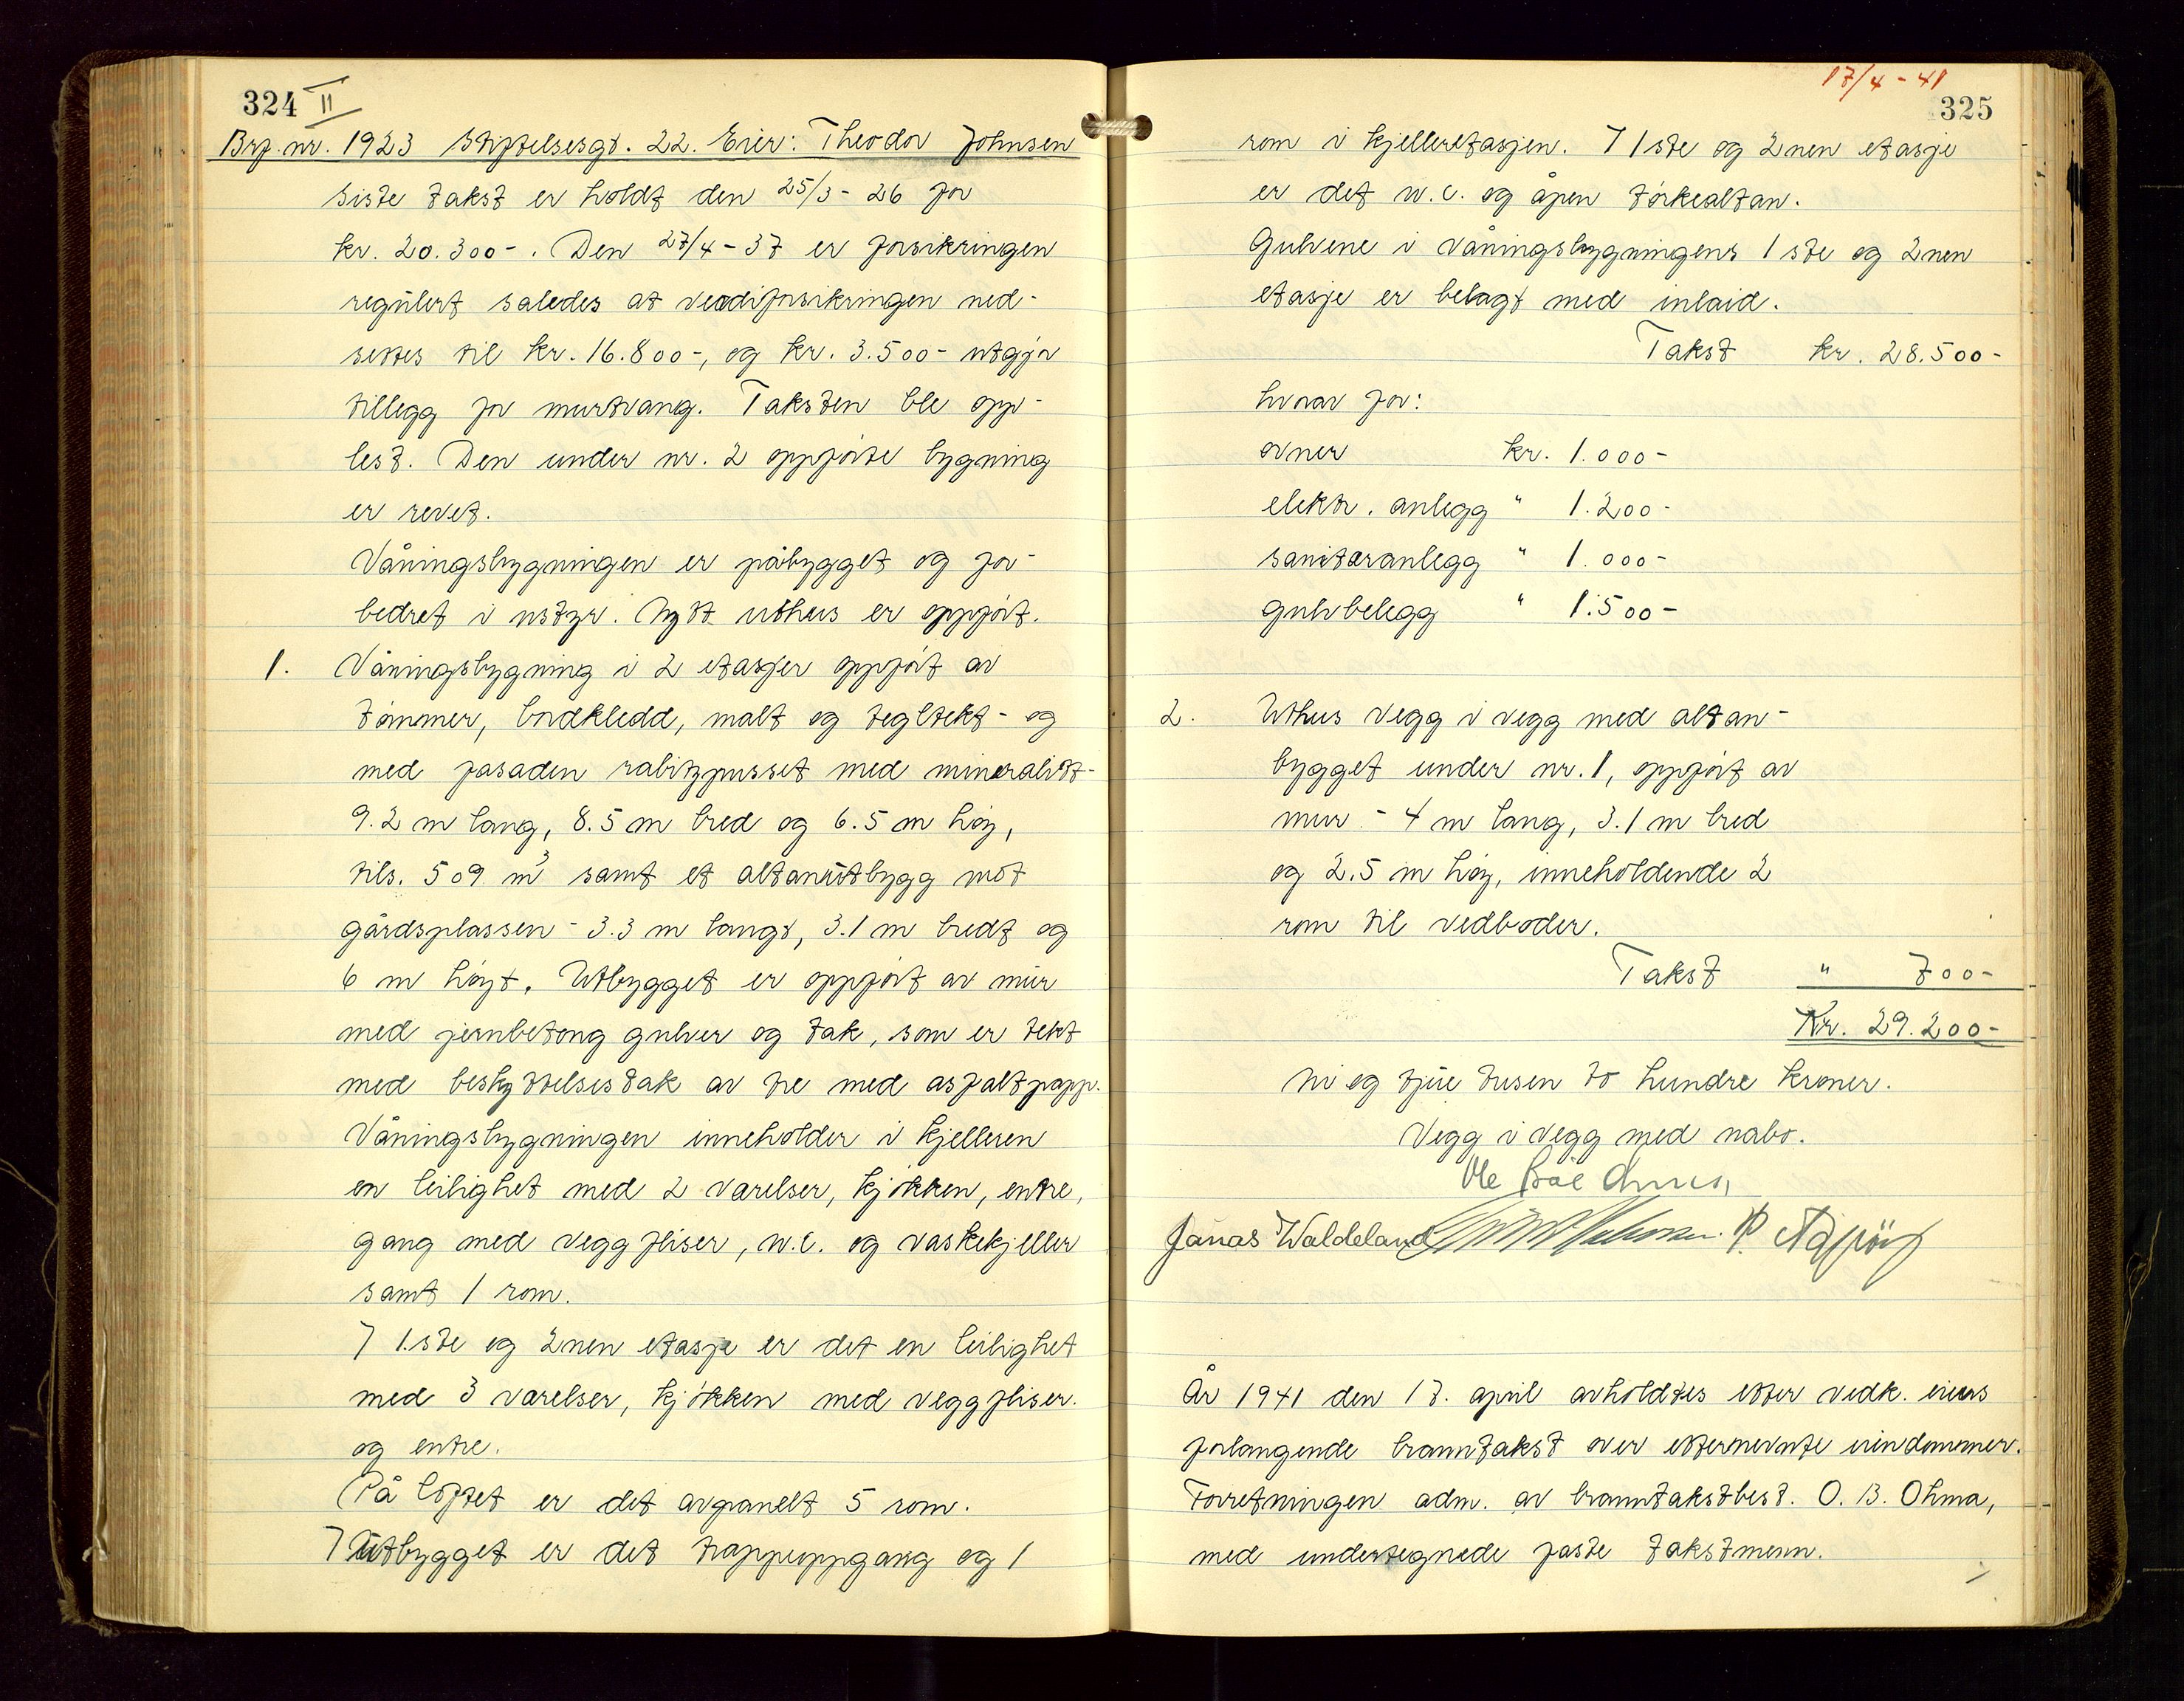 324 II
Brf. nr. 1923 Stiftelsesgt. 22. Eier: Theodor Johnsen
Siste takst er holdt den 25/3 - 26 for
kr. 20.300-. Den 27/4 - 37 er forsikringen
regulert saledes at verdiforsikringen ned-
settes til kr. 16.800-, og kr. 3.500- utgjør
tillegg for murtvang. Taksten ble opp-
lest. Den under nr. 2 oppførte bygning
er revet.
Våningsbygningen er påbygget og for-
bedret i utstyr. Nytt uthus er oppført.
1. Våningsbygning i 2 etasjer oppført av
tømmer, bordkledd, malt og tegltekt - og
med fasaden rabitzpusset med mineralitt -
9.2 m lang, 8.5 m bred og 6.5 m høy,
tils. 509 m³ samt et altanutbygg mot
gårdsplassen - 3.3 m langt, 3.1 m bredt og
6 m høyt. Utbygget er oppført av mur
med jernbetong gulver og tak, som er tekt
med beskyttelsestak av tre med asfaltpapp.
Våningsbygningen inneholder i kjelleren
en leilighet med 2 værelser, kjøkken, entre,
gang med veggfliser, w.c. og vaskekjeller
samt 1 rom.
I 1.ste og 2nen etasje er det en leilighet
med 3 værelser, kjøkken med veggfliser.
og entre.
På loftet er det avpanelt 5 rom.
I utbygget er det trappeoppgang og 1
17/4 - 41
325
rom i kjelleretasjen. I 1ste og 2nen etasje
er det w.c. og åpen tørkealtan.
Gulvene i våningsbygningens 1ste og 2nen
etasje er belagt med inlaid.
Takst kr. 28.500-
hvorav for:
ovner kr. 1.000-
elektr. anlegg " 1.200-
sanitæranlegg " 1.000-
gulvbelegg " 1.500-
2. Uthus vegg i vegg med altan-
bygget under nr. 1, oppført av
mur - 4 m lang, 3.1 m bred
og 2.5 m høy, inneholdende 2
rom til vedboder.
Takst " 700-
Kr. 29.200-
Ni og tjue tusen to hundre kroner.
Vegg i vegg med nabo.
Ole Boe Ohma
Jonas Waldeland
År 1941 den 17. april avholdtes etter vedk. eiers
forlangende branntakst over etternevnte eindommer.
Forretningen adm. av branntakstbest. O. B. Ohma,
med undertegnede faste takstmenn.